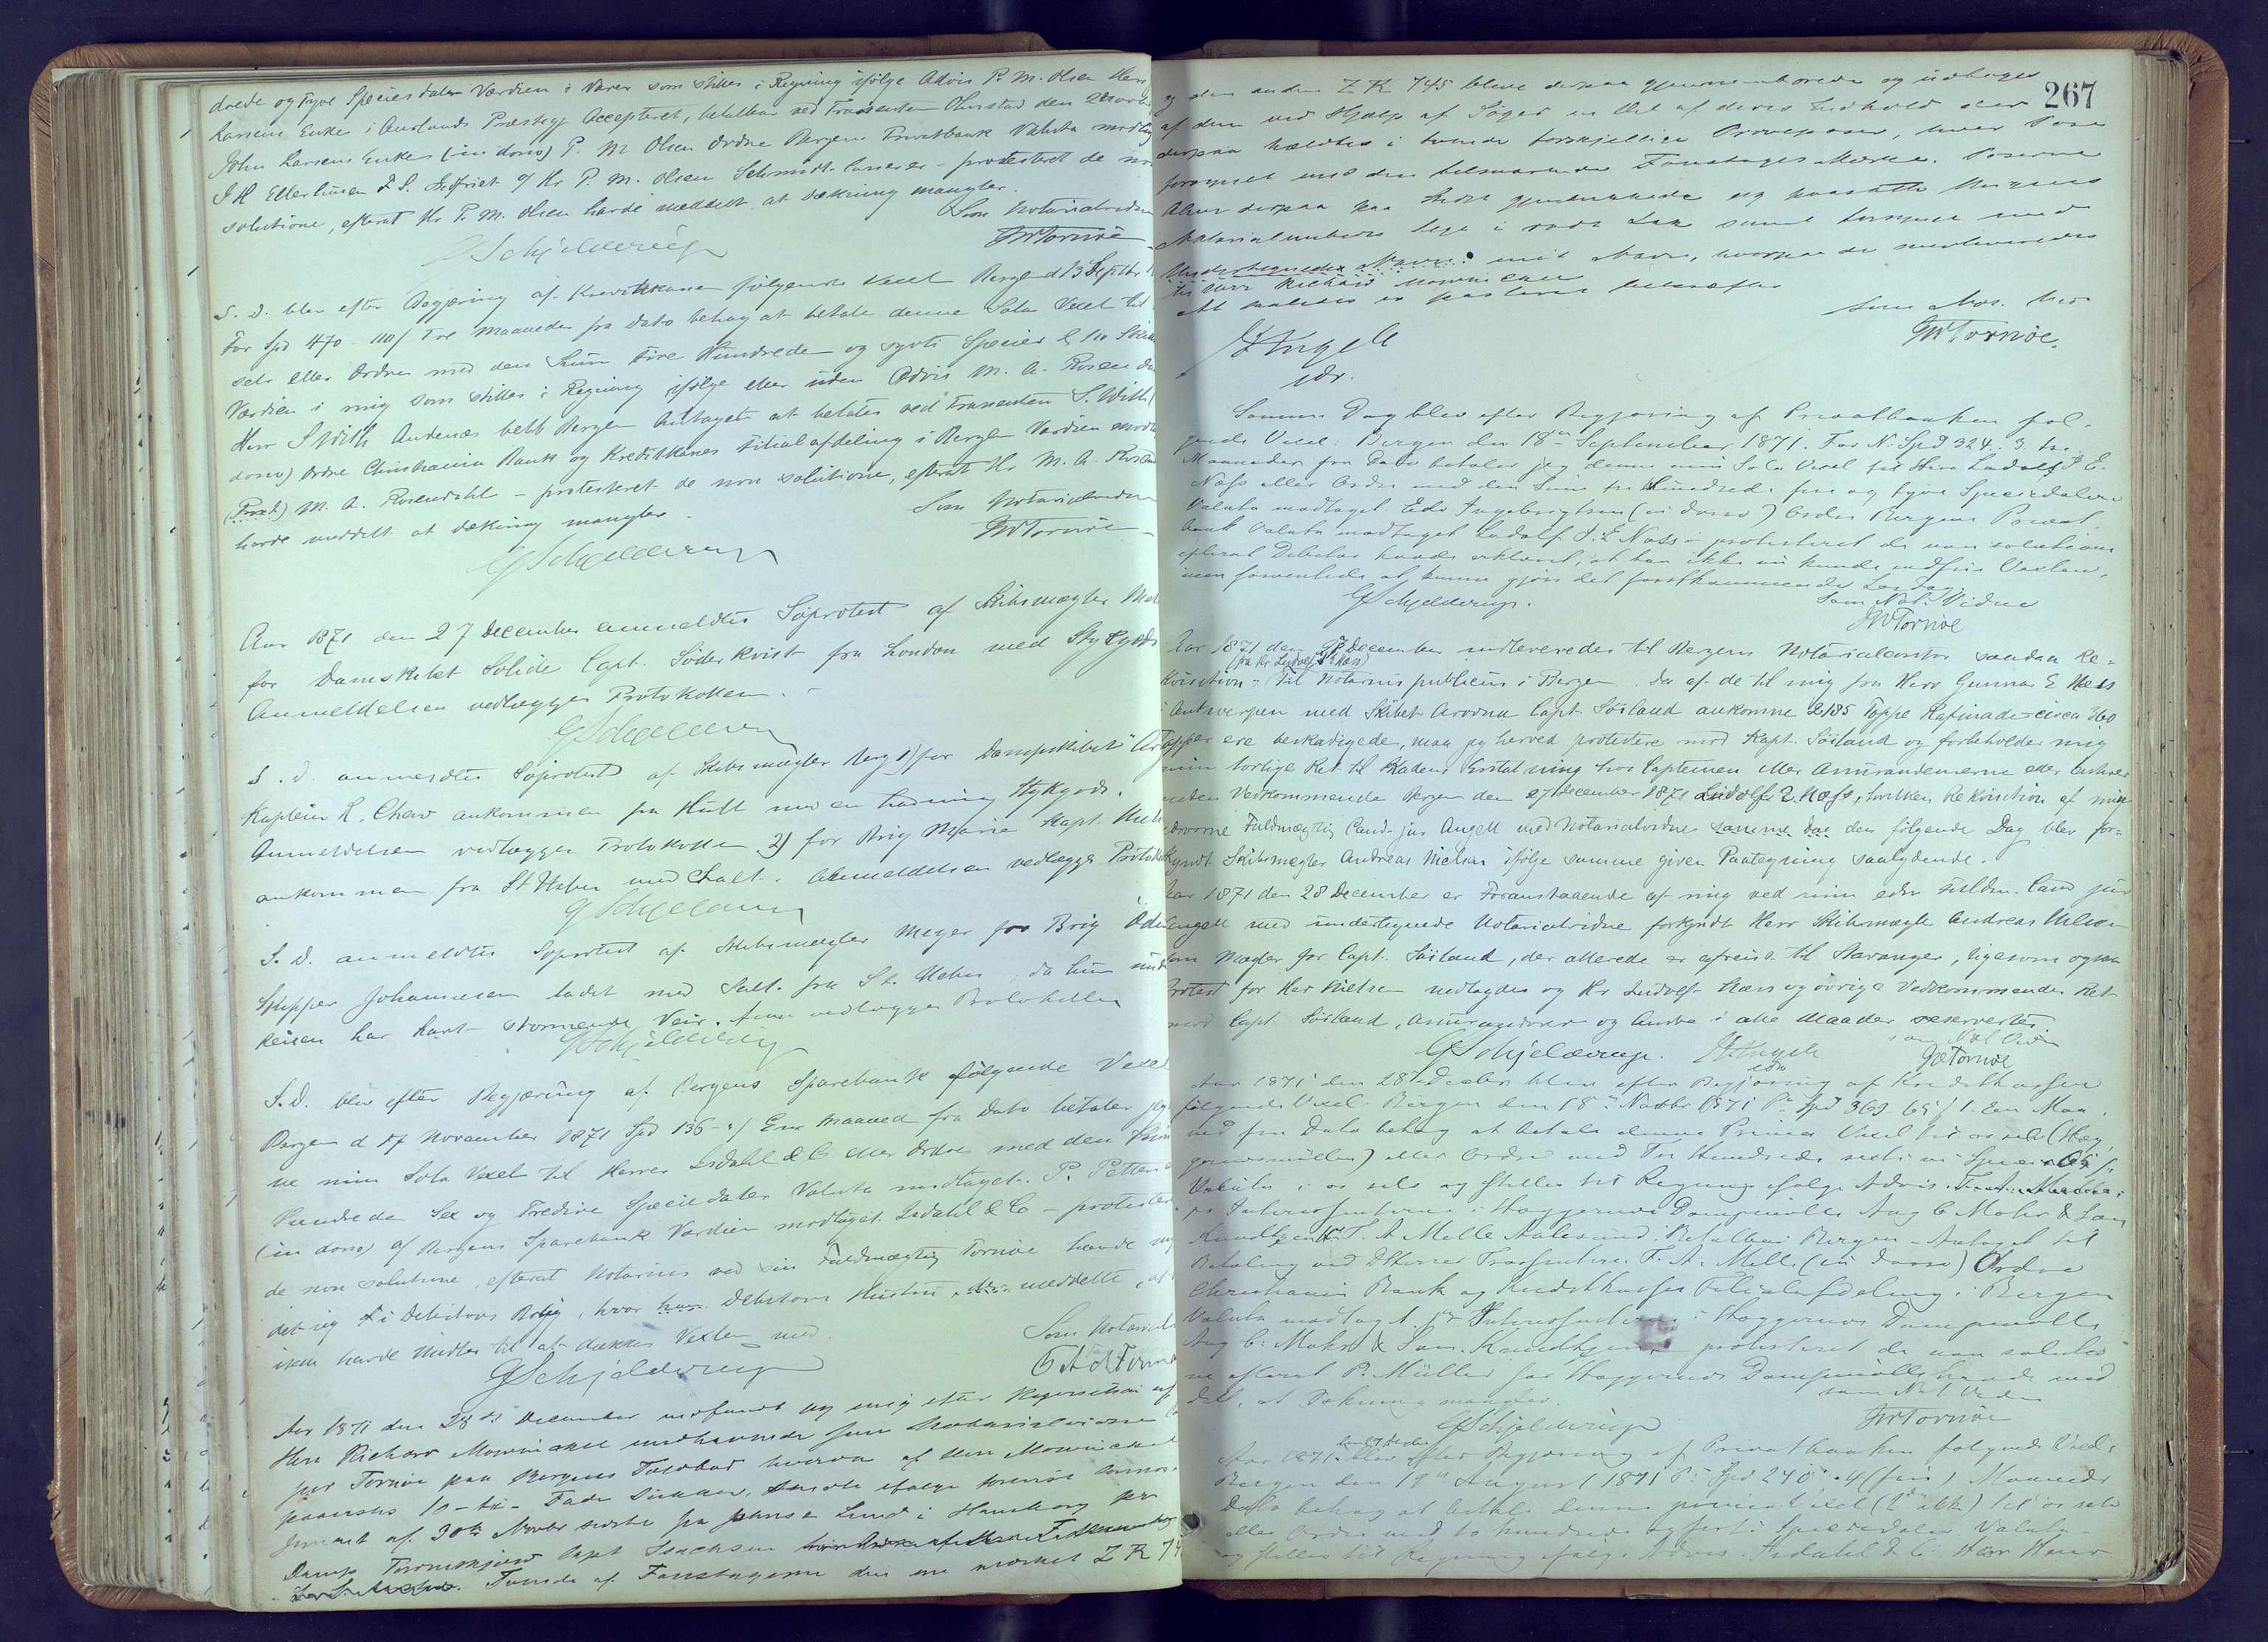 drede og Tyve Speciesdaler Værdien i Varer som stilles i Regning ifølge Advis P. M. Olsen Herr
Larsens Enke i Aurlands Præstegj Accepteret, betalbar ved Trassenten
John Larsens Enke (in dorso) P. M Olsen Ordre Bergens Privatbank Valuta modtag
J H Ellerhusen & S. Casserer - protesteret de non
solutione, efterat Hr P. M. Olsen havde meddelt at dækning mangler.
Som Notarialvidne
GSchjelderup JWTornøe
S. D. blev efter Begjæring af Kreditkassen følgende Vexel Bergen d 13 Septbr
For Spd 470 - 110/ Tre Maaneder fra dato behag at betale denne Sola Vexel til
selv eller Ordre med den Sum Fire Hundrede og sytti Specier & 110 Skill
Værdien i mig som stilles i Regning ifølge eller uden Advis M. A. Rosendahl
Herr S With Andenæs betb Bergen Antaget at betales ved Trassenten S. With (
dorso) Ordre Christiania Bank og Kreditkasses Filialafdeling i Bergen Værdien modt
M. A. Rosendahl - protesteret de non solutione, efterat Hr M. A. Rosen
havde meddelt at dækning mangler.
Som Notarialvidne
GSchjelderup JWTornøe
Aar 1871 den 27 December anmeldtes Søprotest af Skibsmægler
for Damskibet Solide Capt. Söderkvist fra London med Stykgods
Anmeldelsen vedlægges Protokollen.
GSchjelderup
S. D. anmeldtes Søprotest af Skibsmægler Berg 1) for Dampskibet
Kaptein R. Chew ankommen fra Hull med en Ladning Stykgods.
Anmeldelsen vedlægges Protokollen 2) for Brig Marie Kapt.
ankommen fra St Uebes med Salt. Anmeldelsen vedlægges Protokol
GSchjelderup
S. D. anmeldtes Søprotest af Skibsmægler Meyer for Brig
Skipper Johannesen ladet med Salt fra St. Uebes, da han
Reisen har havt stormende Veir. Anm vedlægges Protokollen
GSchjelderup
S. D. blev efter Begjæring af Bergens Sparebank følgende Vexel
Bergen d 17 November 1871 Spd 136-"/ En Maaned fra Dato betaler jeg
ne min Sola Vexel til Herrer Isdahl & C eller Ordre med den Sum
Hundrede Sex og Tredive Speciedaler Valuta modtaget. P. Petter
(in dorso) af Bergens Sparebank Værdien modtaget Isdahl & Co - protester
de non solutione, efterat Notarius ved sin Fuldmægtig Tornøe havde
det sig i Debitors Bolig, hvor Debitors Hustru meddelte, at
ikke havde Midler til at dække Vexlen med.
Som Notarial
GSchjelderup
Aar 1871 den 28de December indfandt jeg mig efter Reqvisition af
Herr Richard Mowinckel medhavende som Notarialvidne
jur Tornøe paa Bergens Toldbod hvorda af Herr Mowinckel
paavistes 10 - ti - Fade Sukker, ifølge
af 30te Novbr sidste fra Lund i Hamborg pr
Damps Tordenskjold Capt Isachsen
Tvende af Fustagerne den ene mærket Z R 74
267
og den anden Z R 745 bleve derpaa gjennemborede og udtoges
af dem ved Hjælp af Søger en Del af deres Indhold der
derpaa hældtes i tvende forskjellige Prøveposer, hver Pose
forsynet med den tilsvarende Fustages Mærke. Poserne
bleve derpaa
Notarialembeds Segl i rødt Lak samt forsynet med
Undertegnedes Navn: mit Navn, hvorpaa de medleveredes
til Herr Richard Mowinckel
At saaledes er passeret bekræftes
Som Not. Vidne
JAngell JWTornøe.
edsv.
Samme Dag blev efter Begjæring af Privatbanken føl-
gende Vexel: Bergen den 18de September 1871. For N. Spd 324. 3 tre
Maaneder fra Dato betaler jeg denne min Sola Vexel til Herr Ludolf J E.
Næss eller Ordre med den Sum tre Hundrede fire og tyve Speciedaler
Valuta modtaget. Edv Ingebrigtsen (in dorso) Ordre Bergens Privat-
bank Valuta modtaget Ludolf J. E Næss - protesteret de non solutione
efterat Debitor havde erklæret, at han ikke nu kunde indfri Vexlen,
men forventede at kunne gjøre det førstkommende Lørdag.
Som Not. Vidne
GSchjelderup. JWTornøe
Aar 1871 den 27 December indleveredes til Bergens Notarialcontor saadan Re-
(fra Hr Ludolf J E Næss)
kvisition: Til Notarius publicus i Bergen. Da af de til mig fra Herr Gunnar E Næss
i Antwerpen med Skibet Arovna Capt. Söiland ankomne 2185 Toppe Rafinade circa 360
Topper ere beskadigede, maa jeg herved protestere mod Kapt. Söiland og forbeholder mig
min lovlige Ret til Skadens Erstatning hos Capteinen eller Assurandeurerne eller enhver
anden Vedkommende Bergen den 27 December 1871 Ludolf J. E. Næss, hvilken Rekvisition af min
edsvorne Fuldmægtig Cand. jur Angell med Notarialvidne samme Dag den følgende Dag blev for-
kyndt Skibsmægler Andreas Nielsen ifølge samme given Paategning saalydende.
Aar 1871 den 28 December er Foranstaaende af mig ved min edsv Fuldm. Cand jur
Angell med undertegnede Notarialvidne forkyndt Herr Skibsmægler Andreas Nielsen
som Mægler for Capt. Söiland, der allerede er afreist til Stavanger, ligesom ogsaa
Protest for Herr Nielsen nedlagdes og Hr Ludolf Næss og øvrige Vedkommendes Ret
mod Capt Söiland, Assurandører og Andre i alle Maader reserveredes.
som Not Vidne
GSchjelderup. JAngell JWTornøe
edsv
Aar 1871 den 28de Decbr blev efter Begjæring af Kreditkassen
følgende Vexel: Bergen den 18de Novbr 1871 Pr Spd 369. 65/ 1. Een Maa-
ned fra Dato behag at betale denne Prima Vexel til os selv (Hæg-
grenæsmøllen) eller Ordre med Tre Hundrede sexti ni Specier 65/
Valuta i os selv og stilles til Regning ifølge Advis.
pr Interessenterne i Hæggernæs Dampmølle Aug C Mohr & Søn
Knudtzen Hr F. A Melle Aalesund: Betalbar Bergen. Antaget til
Betaling ved D'Herrer Trassenter. F. A. Melle (in dorso) Ordre
Christiania Bank og Kreditkasses Filialafdeling i Bergen
Valuta modtaget. pr Interessenterne i Hæggernæs Dampmølle
Aug C: Mohr & Søn. Knudtzen protesteret de non solutio-
ne efterat P. Müller for Hæggernæs Dampmølle havde med-
delt, at Dækning mangler.
som Not Vidne
GSchjelderup JWTornøe
Aar 1871 blev efter Begjæring af Privatbanken følgende Vexel:
Bergen den 19de August 1871 Pr Spd 240. 4 (fire) Maaneder
Dato behag at betale denne prima Vexel (2da ikke) til os selv
eller Ordre med to hundrede og førti Speciedaler Valuta
og stilles til Regning ifølge Advis Isdahl & C: Herr